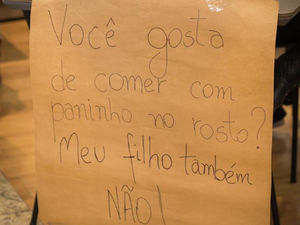 Você gosta
de comer com
paninho no rosto?
Meu filho também
NÃO!